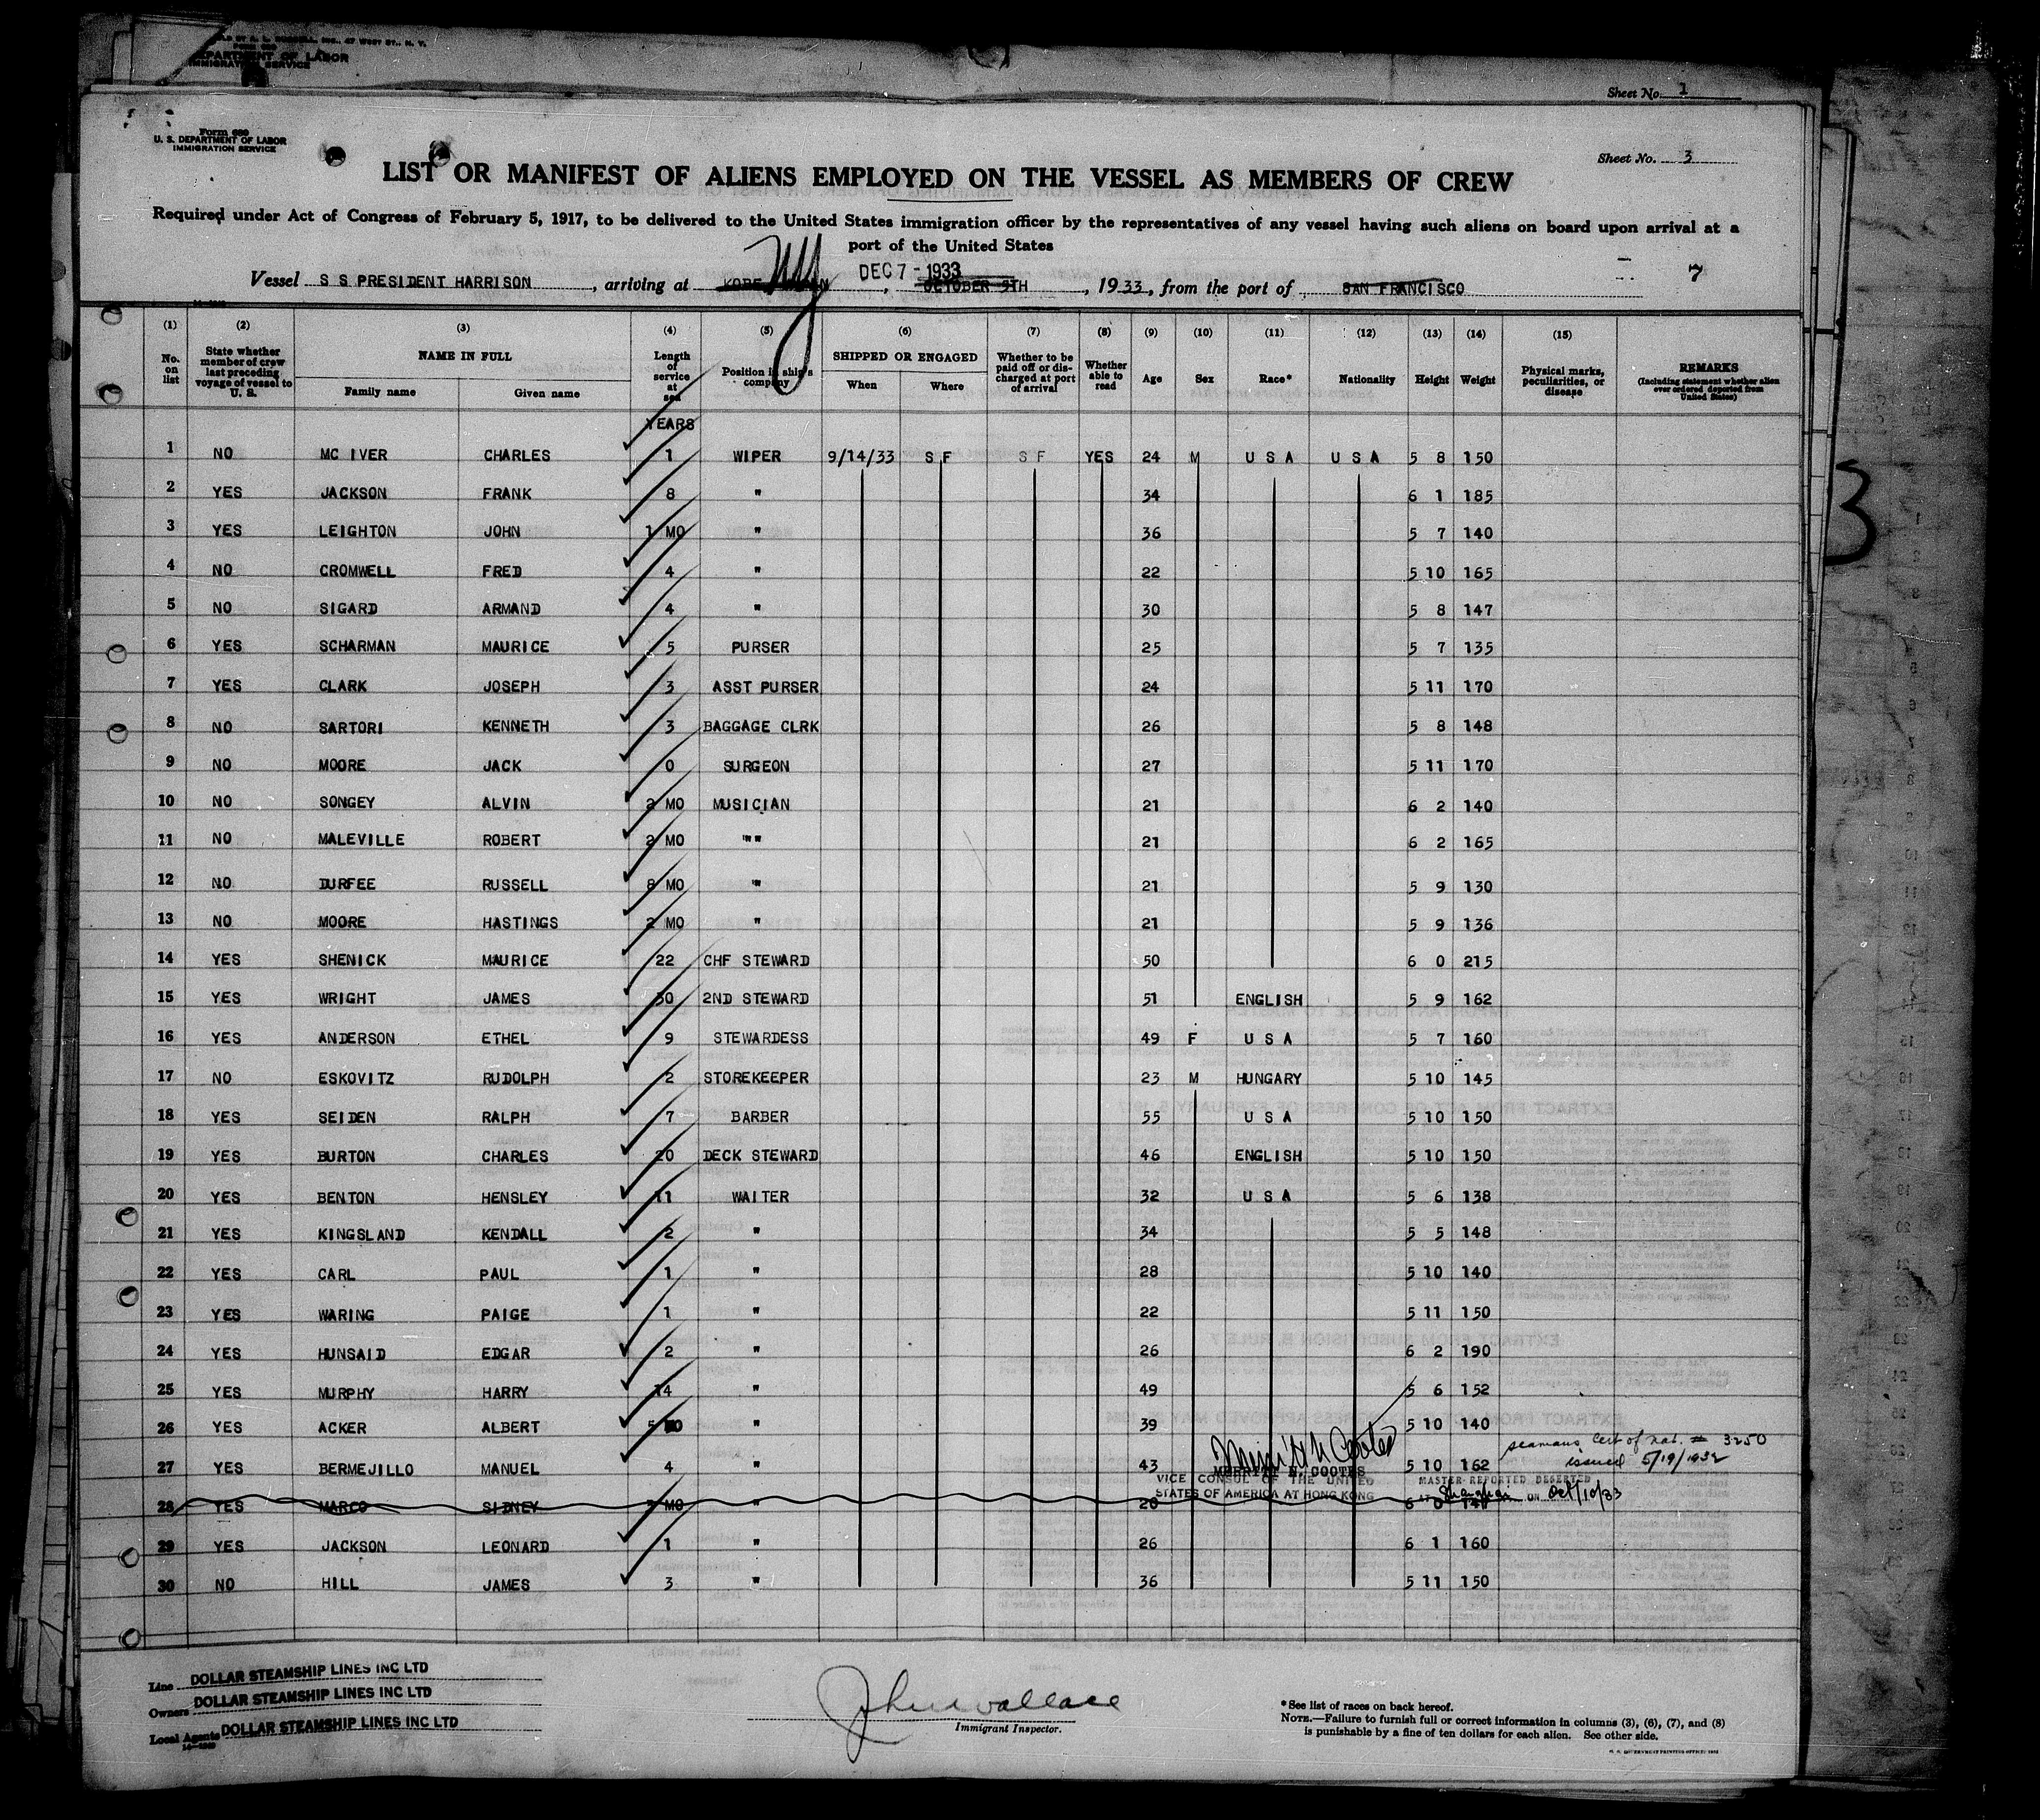 DEPARTMENT OF LABOR
IMMIGRATION SERVICE
Sheet No. 1
Form 680
U. S. DEPARTMENT OF LABOR
IMMIGRATION SERVICE
Sheet No. 3
LIST OR MANIFEST OF ALIENS EMPLOYED ON THE VESSEL AS MEMBERS OF CREW
Required under Act of Congress of February 5, 1917, to be delivered to the United States immigration officer by the representatives of any vessel having such aliens on board upon arrival at a
port of the United States
Vessel S S PRESIDENT HARRISON, arriving at KOBE JAPAN NY, DEC 7 - 1933 OCTOBER 9TH, 1933, from the port of SAN FRANCISCO 7
(1) (2) (3) (4) (5) (6) (7) (8) (9) (10) (11) (12) (13) (14) (15)
No. on list
State whether member of crew last preceding voyage of vessel to U. S.
NAME IN FULL
Family name Given name
Length of service at sea
Position in ship's company
SHIPPED OR ENGAGED
When Where
Whether to be paid off or discharged at port of arrival
Whether able to read
Age Sex Race* Nationality Height Weight
Physical marks, peculiarities, or disease
REMARKS
(Including statement whether alien ever ordered deported from United States)
YEARS
1 NO MC IVER CHARLES 1 WIPER 9/14/33 S F S F YES 24 M U S A U S A 5 8 150
2 YES JACKSON FRANK 8 " 34 6 1 185
3 YES LEIGHTON JOHN 1 MO " 36 5 7 140
4 NO CROMWELL FRED 4 " 22 5 10 165
5 NO SIGARD ARMAND 4 " 30 5 8 147
6 YES SCHARMAN MAURICE 5 PURSER 25 5 7 135
7 YES CLARK JOSEPH 3 ASST PURSER 24 5 11 170
8 NO SARTORI KENNETH 3 BAGGAGE CLRK 26 5 8 148
9 NO MOORE JACK 0 SURGEON 27 5 11 170
10 NO SONGEY ALVIN 2 MO MUSICIAN 21 6 2 140
11 NO MALEVILLE ROBERT 2 MO "" 21 6 2 165
12 NO DURFEE RUSSELL 8 MO " 21 5 9 130
13 NO MOORE HASTINGS 2 MO " 21 5 9 136
14 YES SHENICK MAURICE 22 CHF STEWARD 50 6 0 215
15 YES WRIGHT JAMES 30 2ND STEWARD 51 ENGLISH 5 9 162
16 YES ANDERSON ETHEL 9 STEWARDESS 49 F U S A 5 7 160
17 NO ESKOVITZ RUDOLPH 2 STOREKEEPER 23 M HUNGARY 5 10 145
18 YES SEIDEN RALPH 7 BARBER 55 U S A 5 10 150
19 YES BURTON CHARLES 20 DECK STEWARD 46 ENGLISH 5 10 150
20 YES BENTON HENSLEY 11 WAITER 32 U S A 5 6 138
21 YES KINGSLAND KENDALL 2 " 34 5 5 148
22 YES CARL PAUL 1 " 28 5 10 140
23 YES WARING PAIGE 1 " 22 5 11 150
24 YES HUNSAID EDGAR 2 " 26 6 2 190
25 YES MURPHY HARRY 14 " 49 5 6 152
26 YES ACKER ALBERT 5 MO " 39 5 10 140
seamans cert of nat. # 3250
27 YES BERMEJILLO MANUEL 4 " 43 5 10 162 issued 5/19/1932
MERRITT N. COOTES
VICE CONSUL OF THE UNITED
STATES OF AMERICA AT HONG KONG
MASTER REPORTED DESERTED
AT Shanghai ON Oct/10/33
28 YES MARCO SIDNEY MO " 20 6 0
29 YES JACKSON LEONARD 1 " 26 6 1 160
30 NO HILL JAMES 3 " 36 5 11 150
Line DOLLAR STEAMSHIP LINES INC LTD
Owners DOLLAR STEAMSHIP LINES INC LTD
Local Agents DOLLAR STEAMSHIP LINES INC LTD
14—1240
John Wallace
Immigrant Inspector.
*See list of races on back hereof.
NOTE.—Failure to furnish full or correct information in columns (3), (6), (7), and (8)
is punishable by a fine of ten dollars for each alien. See other side.
3